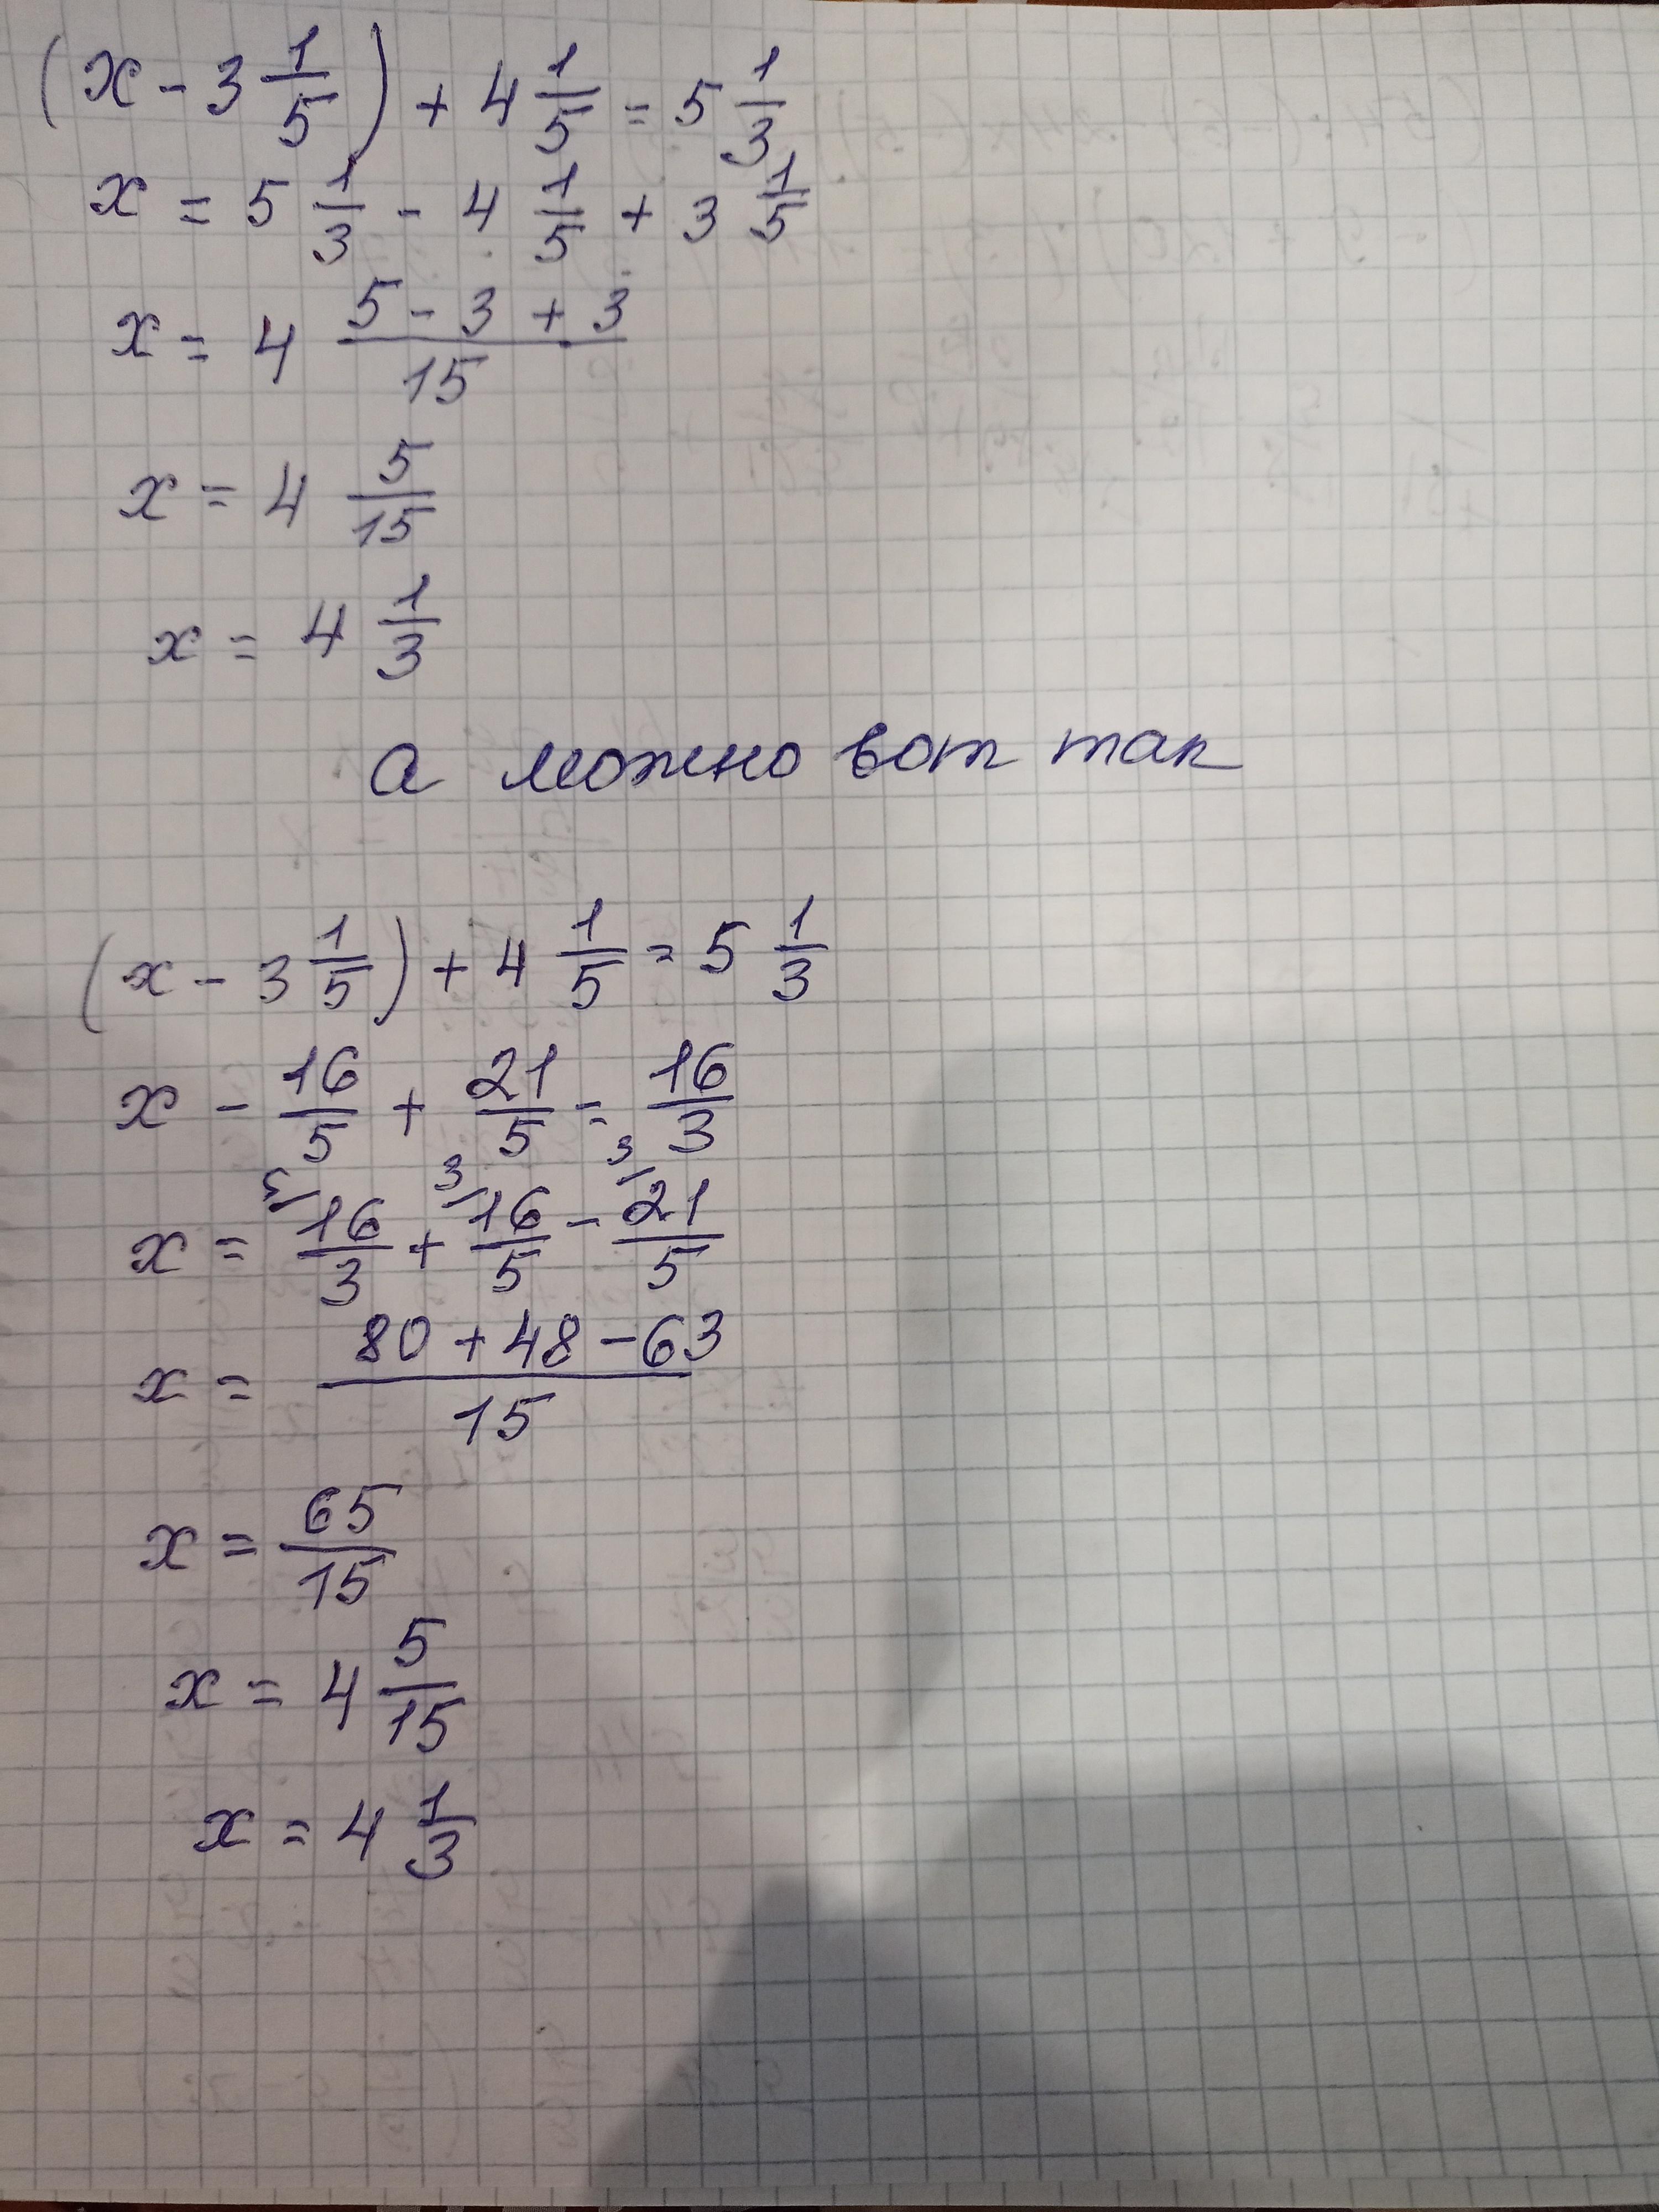 (x - 3 1/5) + 4 1/5 = 5 1/3
x = 5 1/3 - 4 1/5 + 3 1/5
x = 4 (5 - 3 + 3)/15
x = 4 5/15
x = 4 1/3
а можно вот так
(x - 3 1/5) + 4 1/5 = 5 1/3
x - 16/5 + 21/5 = 16/3
x = 5/ 16/3 + 3/ 16/5 - 3/ 21/5
x = (80 + 48 - 63)/15
x = 65/15
x = 4 5/15
x = 4 1/3